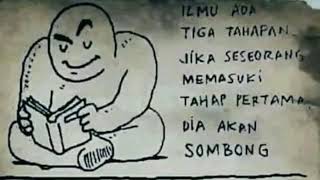 ILMU ADA
TIGA TAHAPAN.
JIKA SESEORANG
MEMASUKI
TAHAP PERTAMA.
DIA AKAN
SOMBONG